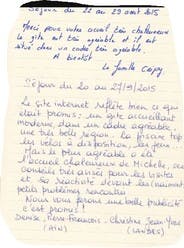 Séjour du 22 au 29 août 2015
Merci pour votre accueil très chaleureux
Le gîte est très agréable et il est
situé dans un cadre très agréable.
A bientôt
La famille
Séjour du 20 au 27/9/2015
Le site internet reflète bien ce qui
était promis : un gîte accueillant
moderne dans un cadre agréable
une très belle région. La piscine top
les vélos à disposition, les jeux
Mais le plus agréable a été
l'accueil chaleureux de Michèle, ses
conseils très aisés pour les visites
et sa réactivité devant les
petits problèmes rencontrés
Nous vous ferons une belle publicité
c'est promis !
Denise, Pierre-François - Christine Jean-Yves
(AIN) (LANDES)